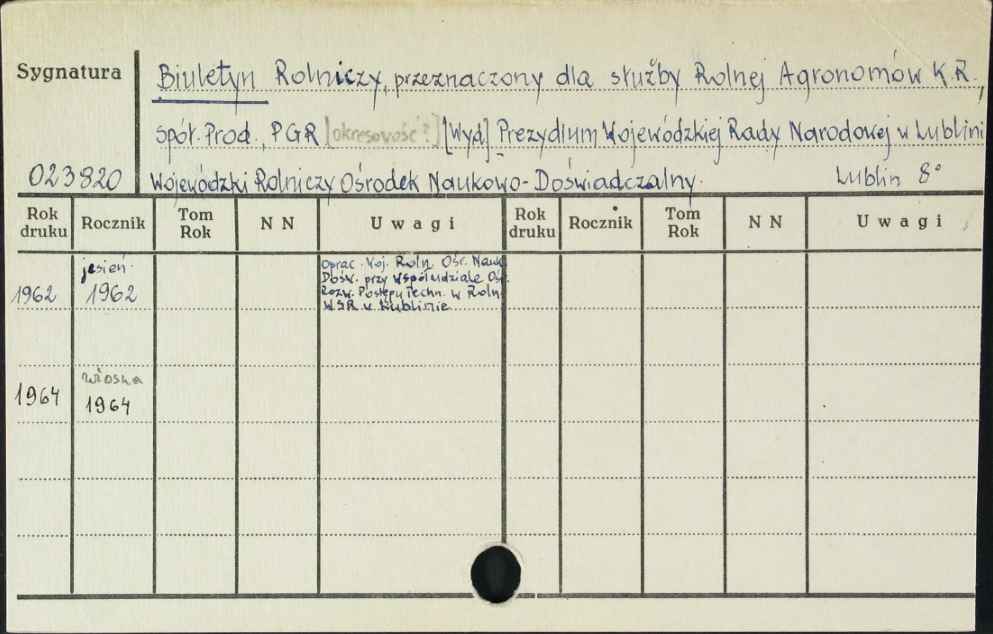 Sygnatura
Biuletyn Rolniczy, przeznaczony dla służby Rolnej Agronomów K.R.,
Spół. Prod., PGR [okresowość?] [Wyd] Prezydium Wojewódzkiej Rady Narodowej w Lublini
023820 Wojewódzki Rolniczy Ośrodek Naukowo-Doświadczalny. Lublin 8°
Rok druku Rocznik Tom Rok N N Uwagi Rok druku Rocznik Tom Rok N N Uwagi
1962 jesień 1962
Oprac. Woj. Roln. Ośr. Nauk.
Dośw. przy współudziale Ośr.
Rozw. Postępu Techn. w Roln.
WSR w Lublinie
1964 wiosna 1964